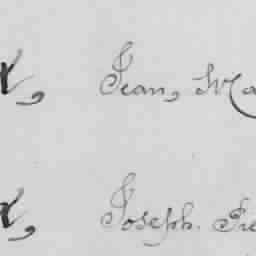 x, Jean, Ma
x, Joseph. Fre